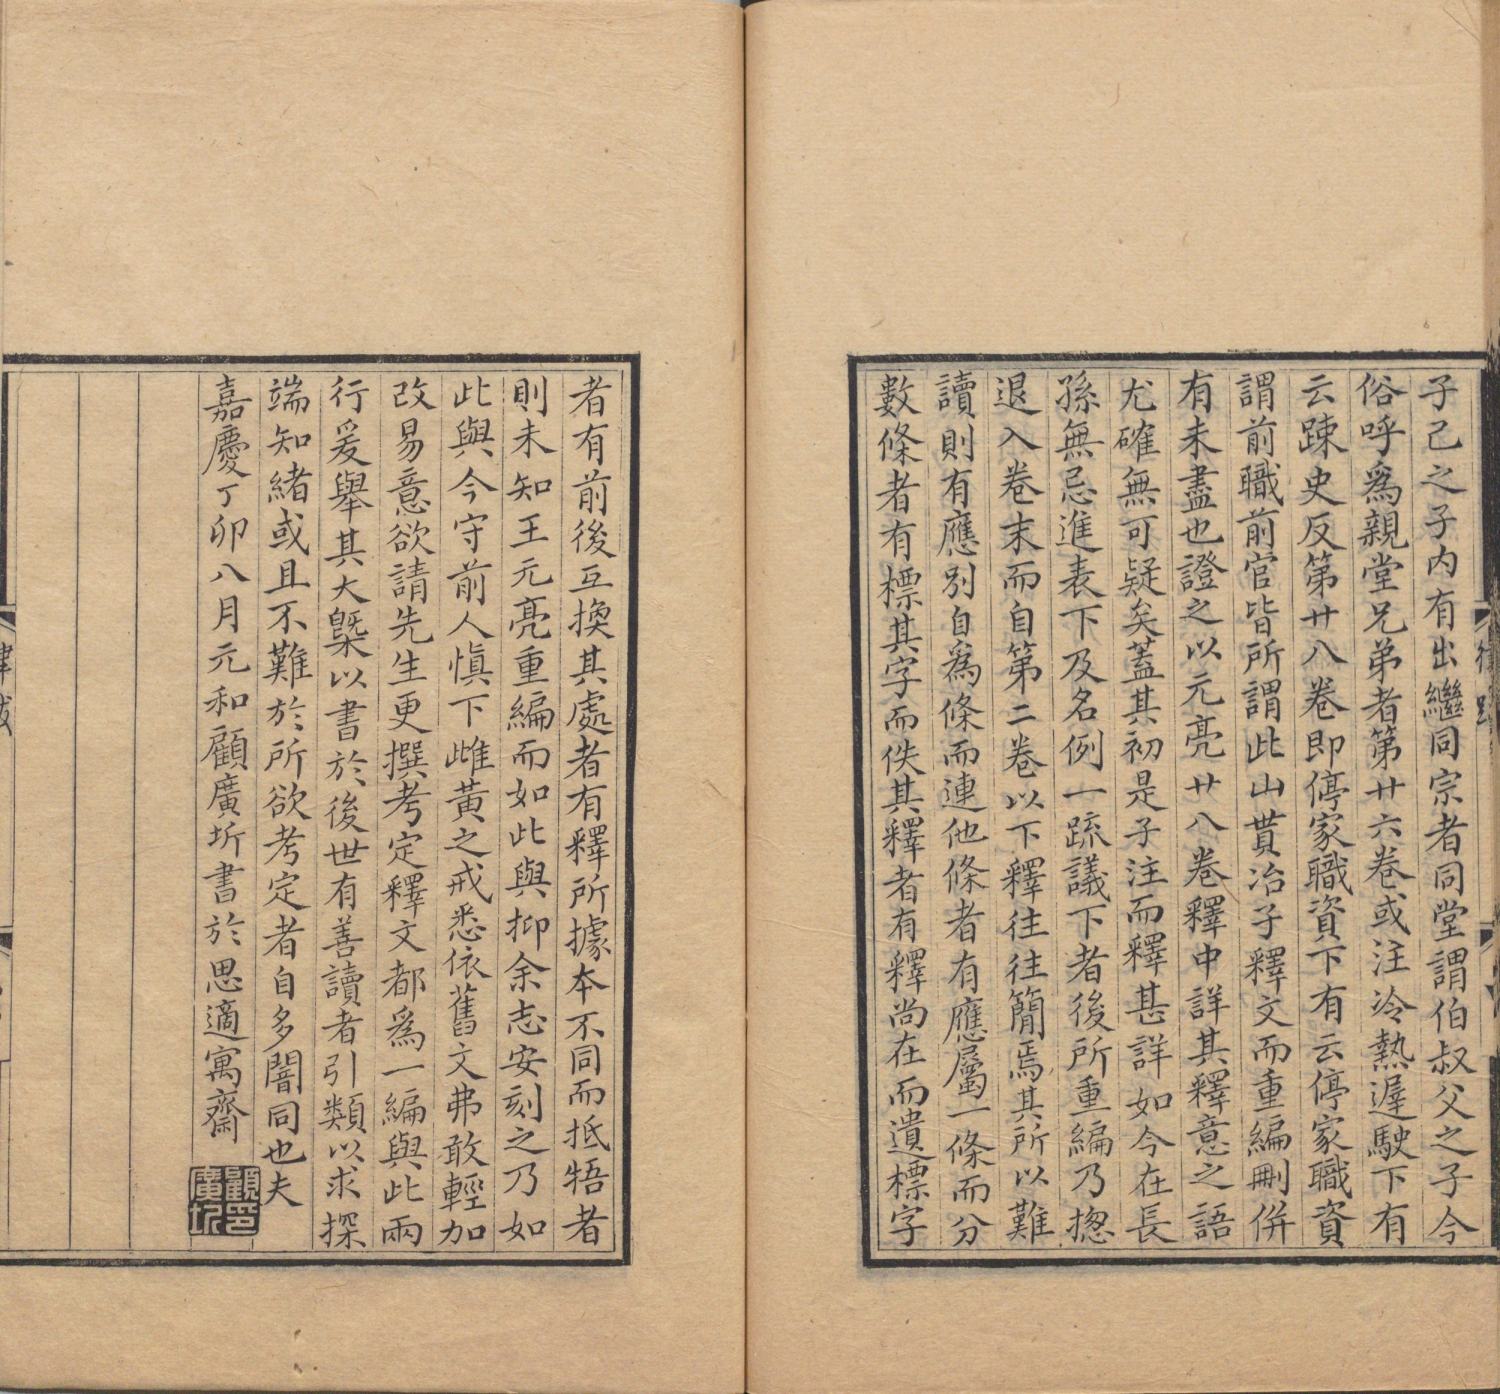 子己之子内有出繼同宗者同堂謂伯叔父之子今
俗呼爲親堂兄弟者第廿六卷或注冷熱遲駛下有
云踈史反第廿八卷即停家職資下有云停家職資
謂前職前官皆所謂此山貰冶子釋文而重編刪併
有未盡也證之以元亮廿八卷釋中詳其釋意之語
尤確無可疑矣蓋其初是子注而釋甚詳如今在長
孫無忌進表下及名例一疏議下者後所重編乃揔
退入卷末而自第二卷以下釋往往簡焉其所以難
讀則有應別自爲條而連他條者有應屬一條而分
數條者有標其字而佚其釋者有釋尚在而遺標字
者有前後互換其處者有釋所據本不同而抵牾者
則未知王元亮重編而如此與抑余志安刻之乃如
此與今守前人愼下雌黃之戒悉依舊文弗敢輕加
改易意欲請先生更撰考定釋文都爲一編與此兩
行爰舉其大槩以書於後世有善讀者引類以求探
端知緒或且不難於所欲考定者自多闇同也夫
嘉慶丁卯八月元和顧廣圻書於思適寓齋
顧廣圻印
律跋